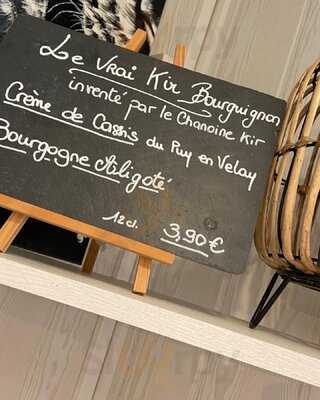 Le Vrai Kir Bourguignon
inventé par le Chanoine Kir
Crème de Cassis du Puy en Velay
Bourgogne Aligoté
12cl. 3,90€